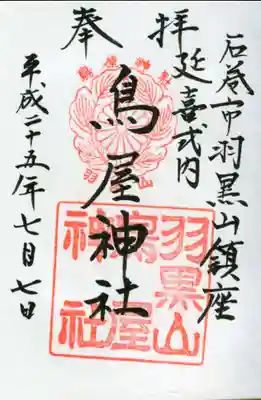 石巻市羽黒山鎮座
延喜式内
奉拝
鳥屋神社
平成二十五年七月七日
羽黒山
鳥屋
神社